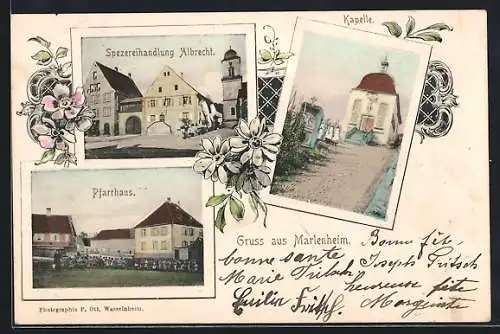 Spezereihandlung Albrecht.
Kapelle.
Pfarrhaus.
Gruss aus Marlenheim.
Bonne fête
bonne santé
Joseph Fritsch
Marie Fritsch
heureuse fête
Emilie Fritsch
Marguerite
Photographie P. Ott, Wasselnheim.